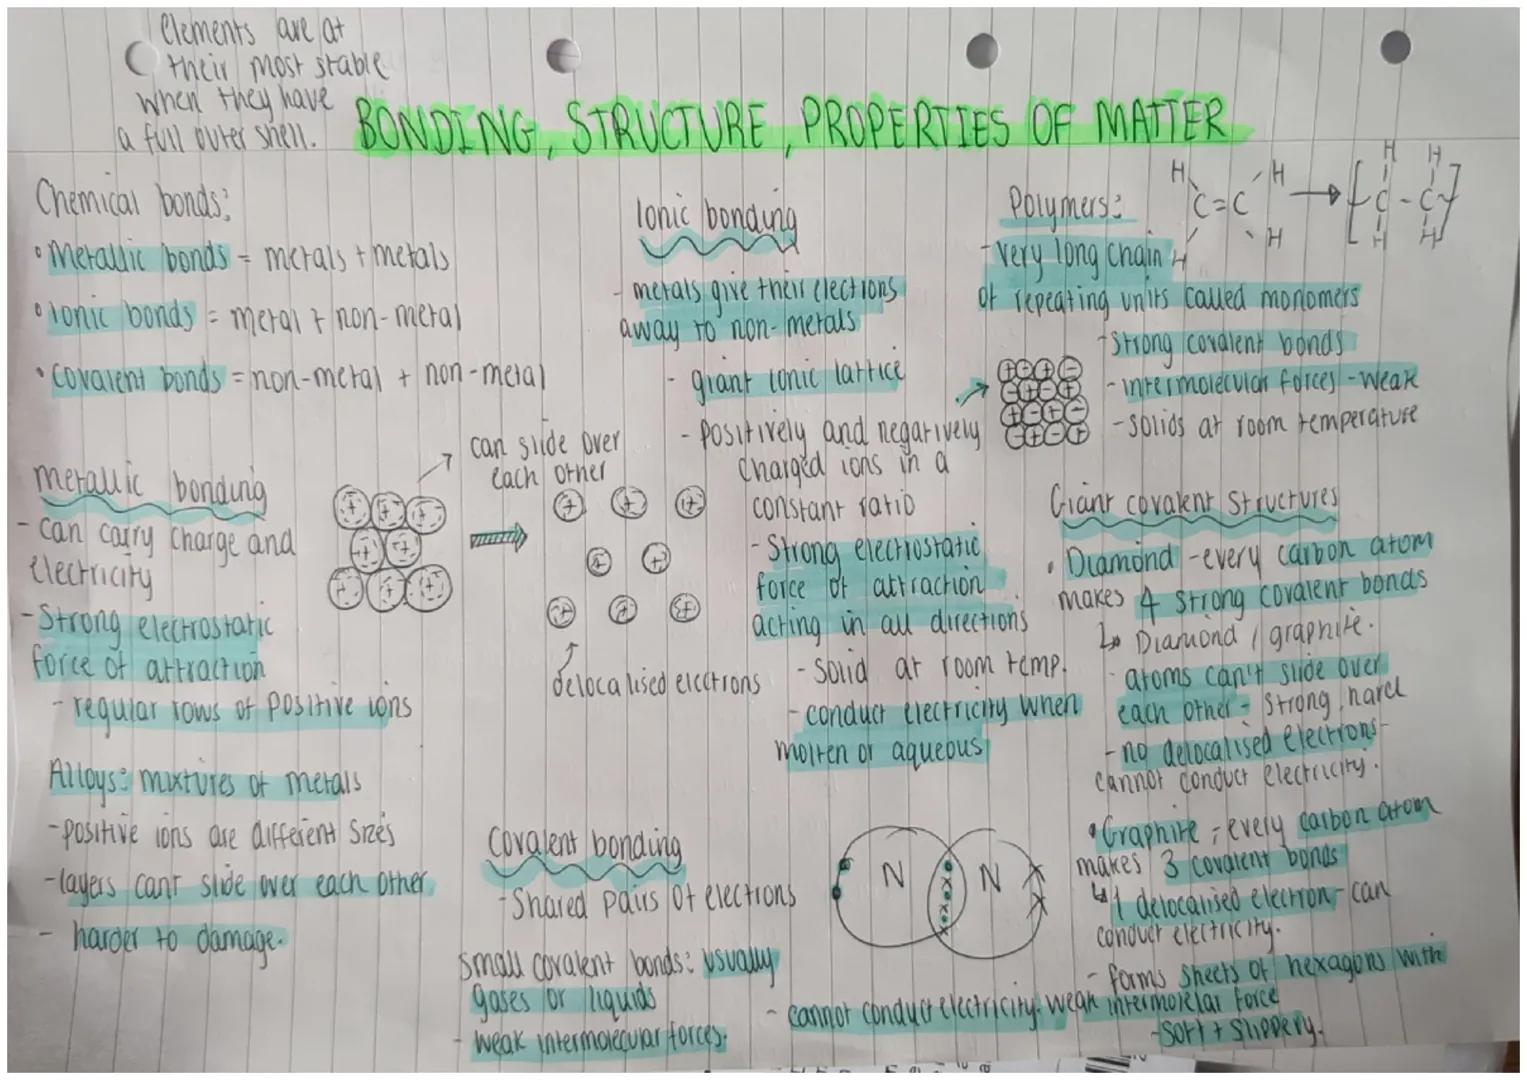 Elements are at
their most stable
when they have
a full outer shell.
BONDING, STRUCTURE, PROPERTIES OF MATTER
Chemical bonds:
• Metallic bonds = metals + metals
• Ionic bonds = metal + non-metal
• Covalent bonds = non-metal + non-metal
Metallic bonding
- can carry charge and
electricity
- Strong electrostatic
force of attraction
- regular rows of positive ions
can slide over
each other
delocalised electrons
Alloys: mixtures of metals
- positive ions are different sizes
- layers cant slide over each other
- harder to damage.
Ionic bonding
- metals give their electrons
away to non-metals
- giant ionic lattice
- positively and negatively
charged ions in a
constant ratio
- Strong electrostatic
force of attraction
acting in all directions
- Solid at room temp.
- conduct electricity when
molten or aqueous
Covalent bonding
- Shared pairs of electrons
small covalent bonds: usually
gases or liquids
- weak intermolecular forces.
- cannot conduct electricity.
N N
Polymers:
H H
C=C
H H
H H
C - C
H H
- very long chain
of repeating units called monomers
- Strong covalent bonds
- intermolecular forces - weak
- solids at room temperature
Giant covalent structures
• Diamond - every carbon atom
makes 4 strong covalent bonds
↳ Diamond / graphite.
- atoms can't slide over
each other - strong, hard
- no delocalised electrons -
cannot conduct electricity.
• Graphite - every carbon atom
makes 3 covalent bonds
↳ 1 delocalised electron - can
conduct electricity.
- forms sheets of hexagons with
weak intermolelar force
- Soft + slippery.